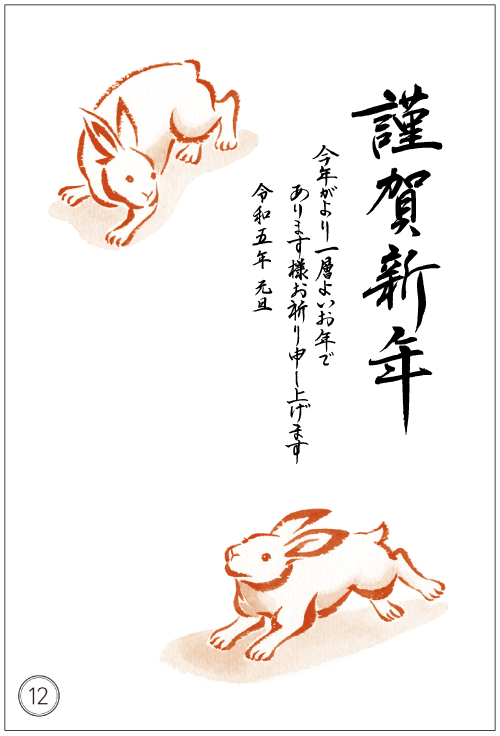 謹賀新年
今年がより一層よいお年で
あります様お祈り申し上げます
令和五年 元旦
12